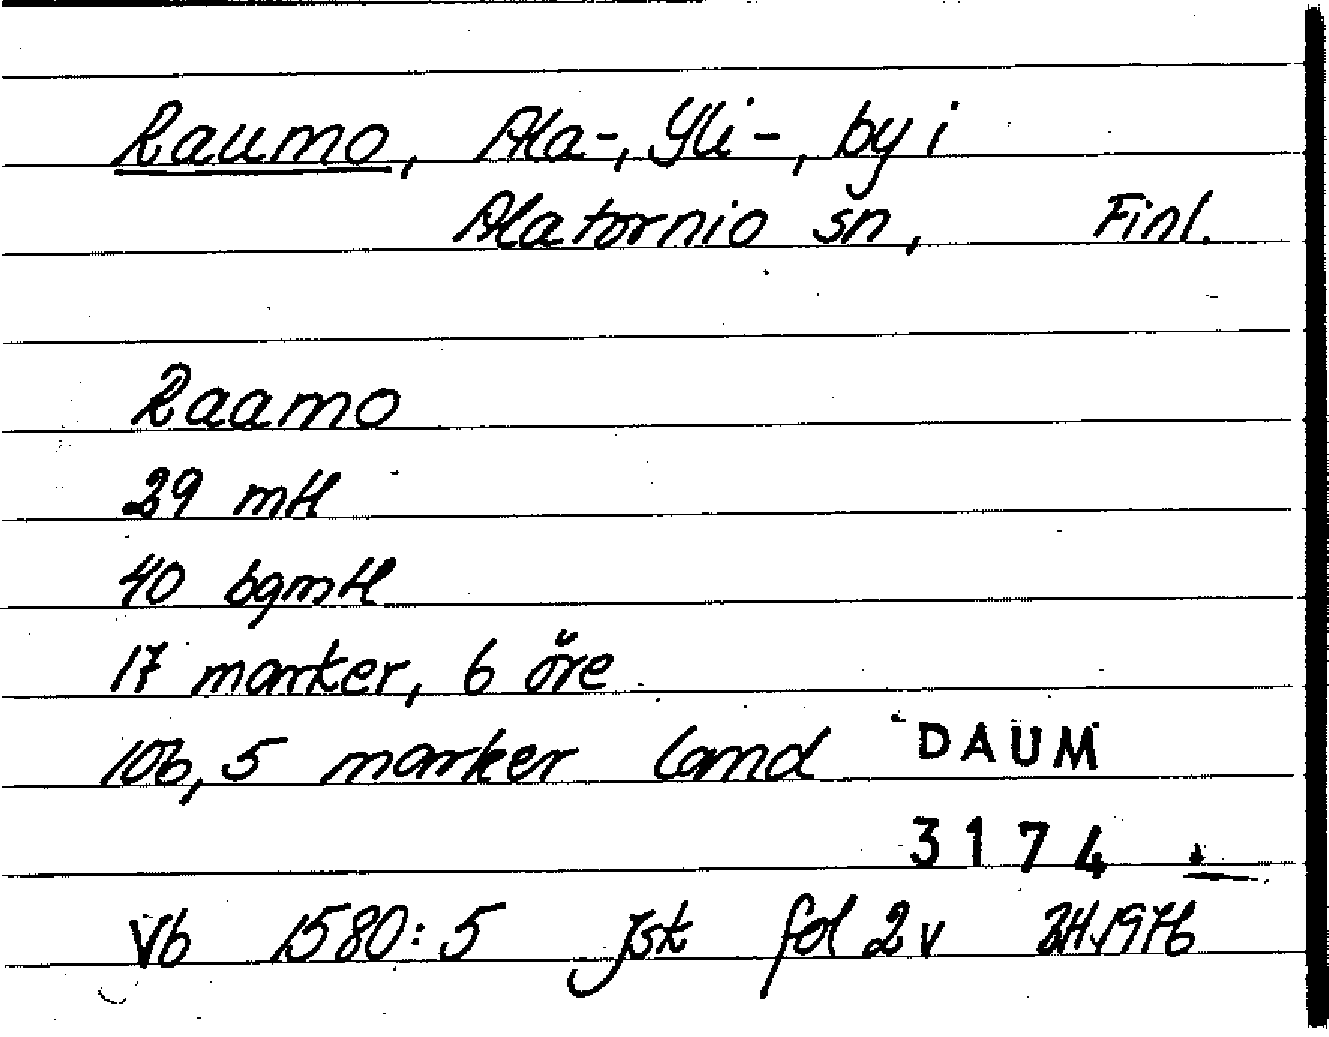 Raumo, Ala-, Yli-, by i
Alatornio sn, Finl.
Raamo
29 mtl
40 bgmtl
17 marker, 6 öre
106,5 marker land
DAUM
3174
Vb 1580:5 Jsk fol 2v 1976